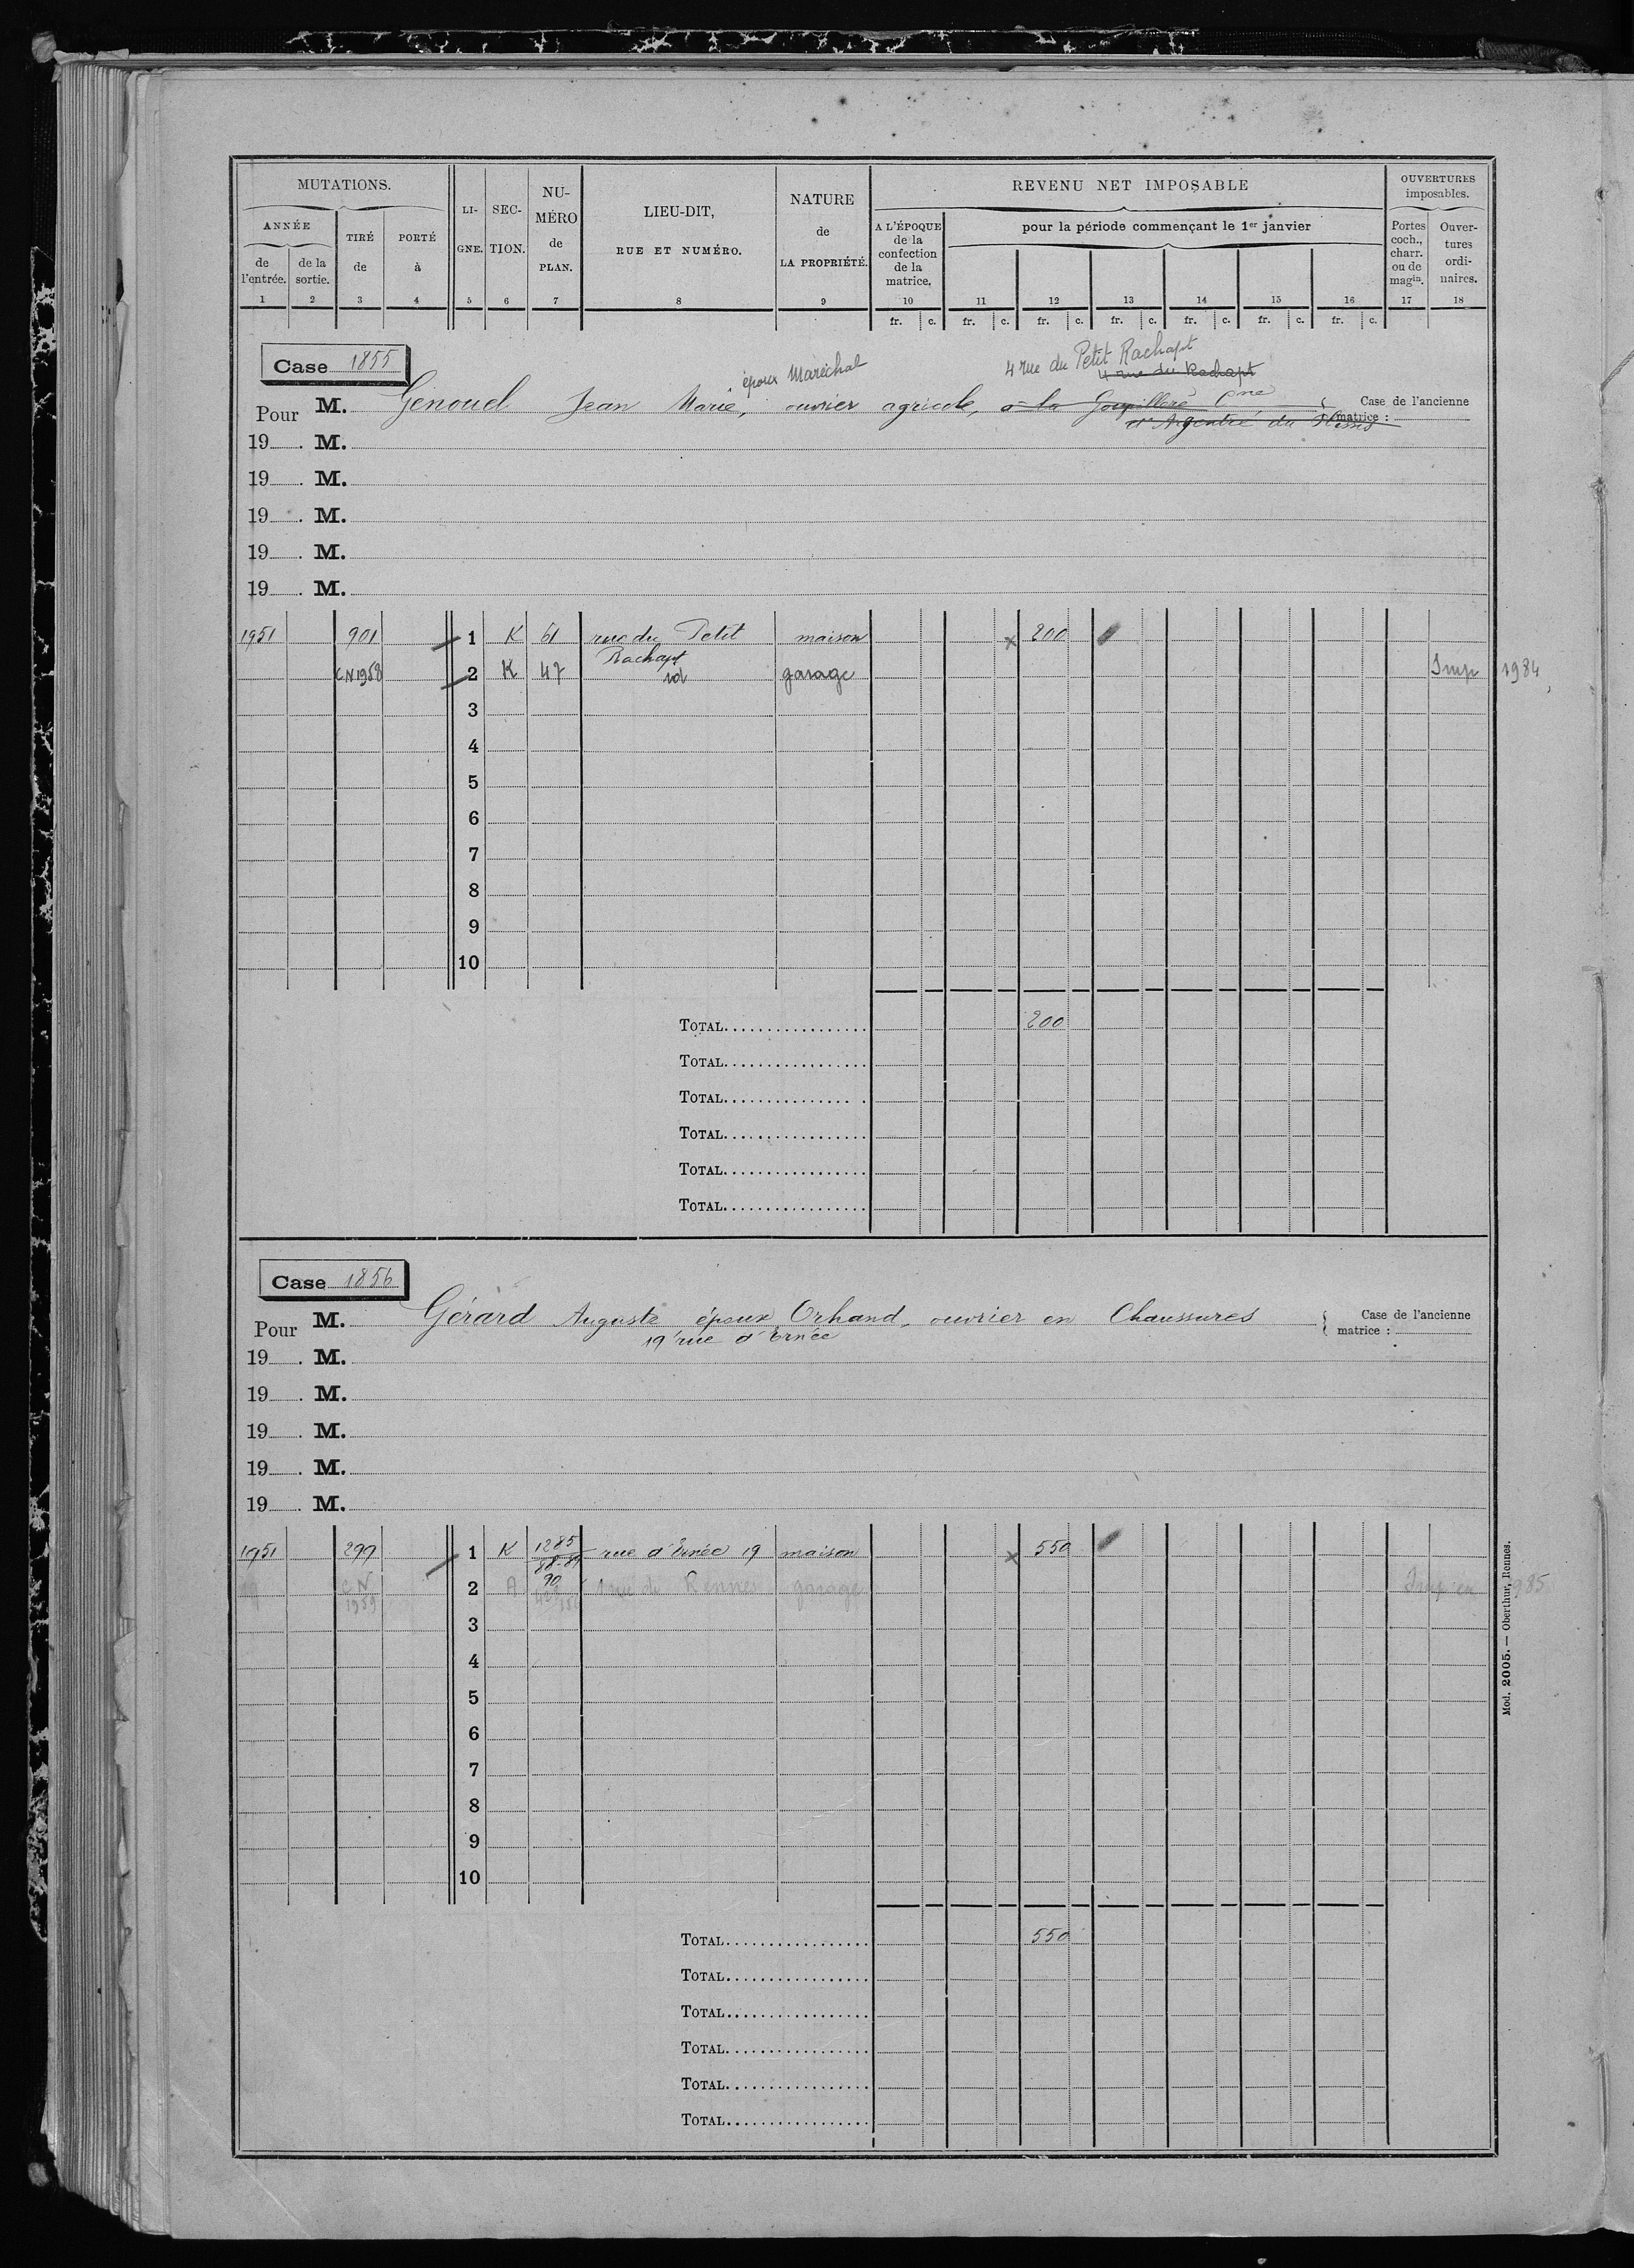 MUTATIONS.
ANNÉE
de l'entrée.
de la sortie.
TIRÉ de
PORTÉ à
LIGNE.
SECTION.
NUMÉRO de PLAN.
LIEU-DIT,
RUE ET NUMÉRO.
NATURE
de
LA PROPRIÉTÉ.
REVENU NET IMPOSABLE
A L'ÉPOQUE de la confection de la matrice.
pour la période commençant le 1er janvier
OUVERTURES imposables.
Portes coch., charr. ou de magin.
Ouvertures ordinaires.
1 2 3 4 5 6 7 8 9 10 11 12 13 14 15 16 17 18
fr. c. fr. c. fr. c. fr. c. fr. c. fr. c. fr. c.
Case 1855
époux Maréchal
4 rue du Petit Rachapt
4 rue du Rachapt
Pour M. Genouel Jean Marie, ouvrier agricole, à la Goupillère Cne
d'Argentré du Plessis
Case de l'ancienne
matrice :
19 . M.
19 . M.
19 . M.
19 . M.
19 . M.
1951 901 1 K 61 rue du Petit Rachapt maison x 200
CN 1958 2 K 47 id garage Imp 1984
3
4
5
6
7
8
9
10
TOTAL 200
TOTAL
TOTAL
TOTAL
TOTAL
TOTAL
Case 1856
Pour M. Gérard Auguste époux Orhand, ouvrier en Chaussures
19 rue d'Ernée
Case de l'ancienne
matrice :
19 . M.
19 . M.
19 . M.
19 . M.
19 . M.
1951 299 1 K 1285 88-89 90 rue d'Ernée 19 maison x 550
CN 1959 2 A rue de Rennes garage Imp en 1985
3
4
5
6
7
8
9
10
TOTAL 550
TOTAL
TOTAL
TOTAL
TOTAL
TOTAL
Mod. 2005. — Oberthur, Rennes.